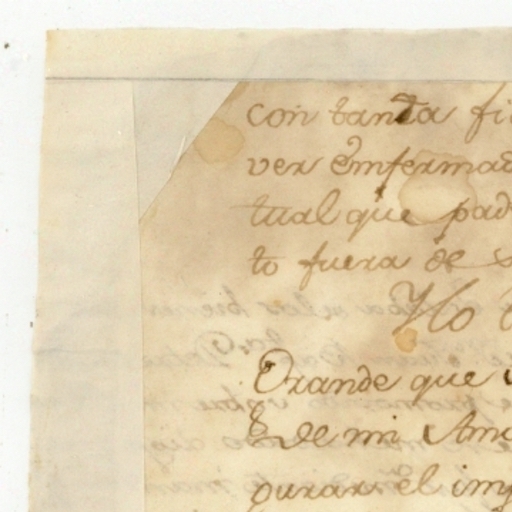 con tanta fi
ver enfermad
tual que pad
to fuera de s
Yo
Grande que
de mi Amo
purar el imp